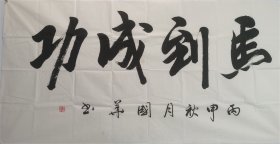 馬到成功
丙申秋月國華書